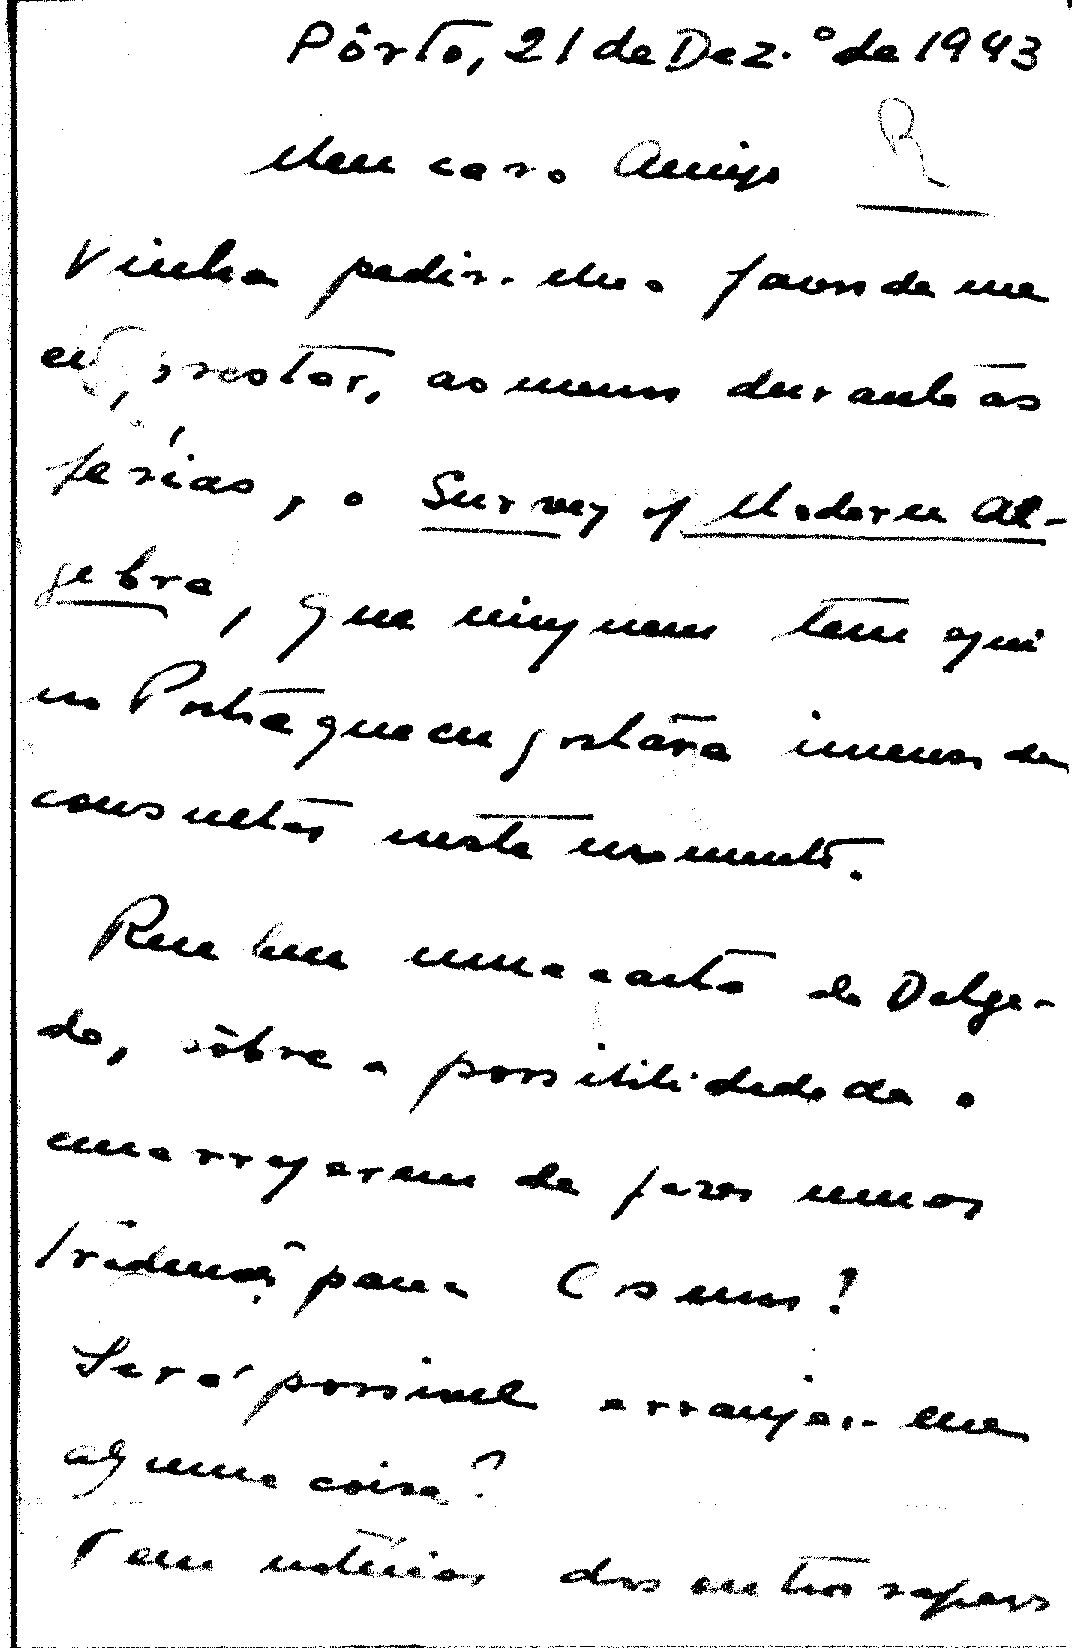 Pôrto, 21 de Dez.º de 1943
Meu caro Amigo R
Vinha pedir-lhe o favor de me
emprestar, ao menos durante as
férias, o Survey of Modern Al-
gebra, que ninguem tem aqui
no Porto e que eu gostava imenso de
consultar neste momento.
Recebeu uma carta do Delga-
do, sôbre a possibilidade de o
encarregarem de fazer umas
traduções para o Cosmos?
Será possivel arranjar-me
alguma coisa?
Tem notícias dos outros rapazes